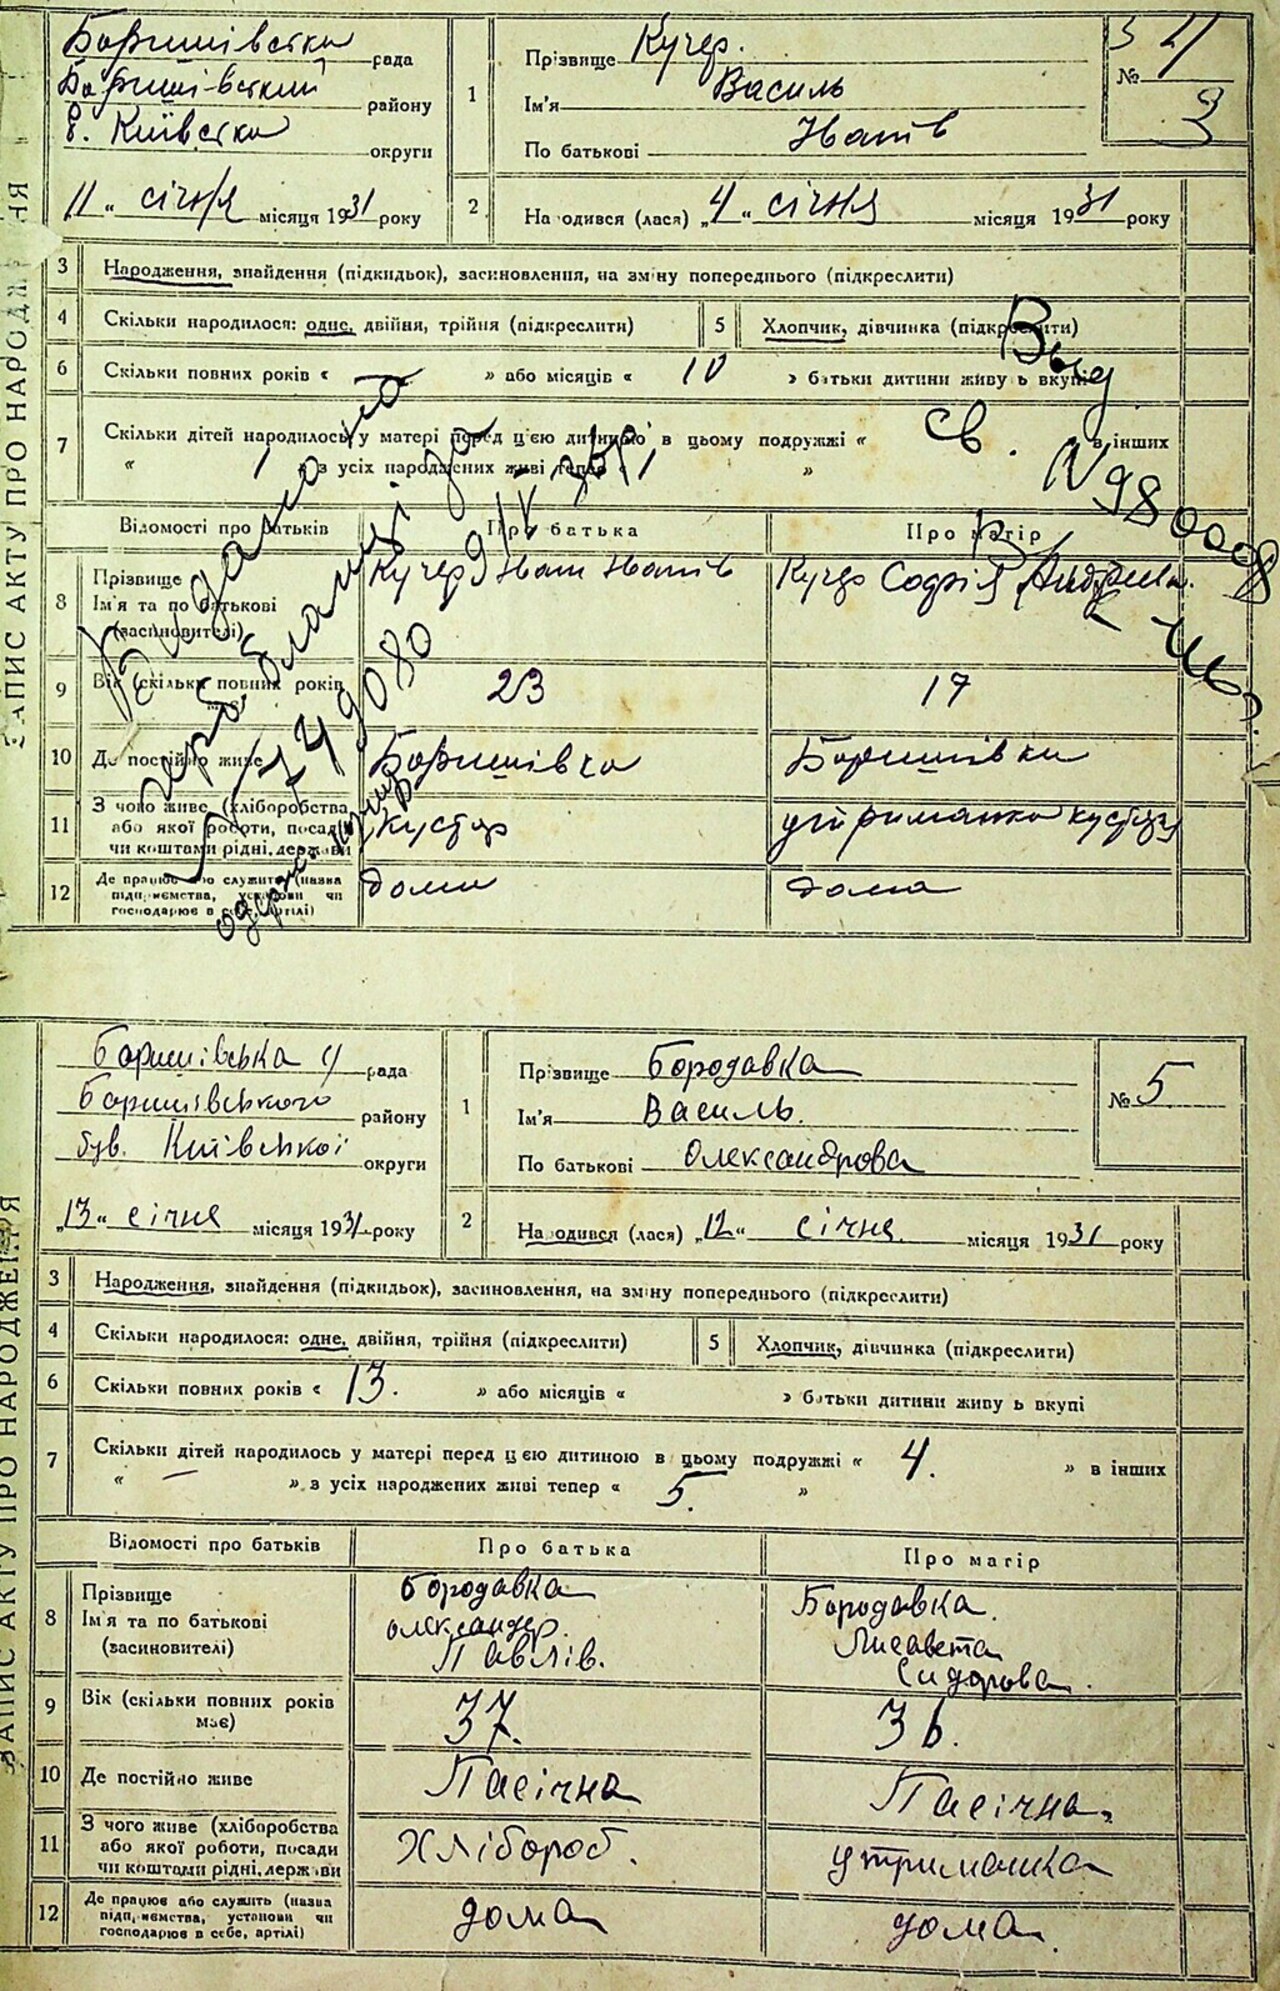 ЗАПИС АКТУ ПРО НАРОДЖЕННЯ
Баришівська рада
Баришівський району
б. Київська округи
„11“ січня місяця 1931 року
1
Прізвище Кучер.
Ім'я Василь
По батькові Іванів
№ 4
3
2
Народився (лася) „4“ січня місяця 1931 року
3 Народження, знайдення (підкидьок), засиновлення, на зміну попереднього (підкреслити)
4 Скільки народилося: одне, двійня, трійня (підкреслити)
5 Хлопчик, дівчинка (підкреслити)
6 Скільки повних років « » або місяців « 10 » батьки дитини живуть вкупі
7 Скільки дітей народилось у матері перед цією дитиною в цьому подружжі « в інших
« » з усіх народжених живі тепер « 1 »
Відомості про батьків Про батька Про матір
8 Прізвище Ім'я та по батькові (засиновителі)
Кучер Іван Іванів
Кучер Софія
9 Вік (скільки повних років 23 17
10 Де постійно живе Баришівка Баришівка
11 З чого живе (хліборобства або якої роботи, посади чи коштами рідні, держави
кустар
утриманка кустаря
12 Де працює або служить (назва підприємства, установи чи господарює в себе, артілі)
дома дома
Выд
св.
N 980008
Видано
179080
ЗАПИС АКТУ ПРО НАРОДЖЕННЯ
Баришівська рада
Баришівського району
був. Київської округи
„13“ січня місяця 1931 року
1
Прізвище Бородавка
Ім'я Василь.
По батькові Олександрова
№ 5
2
Народився (лася) „12“ січня місяця 1931 року
3 Народження, знайдення (підкидьок), засиновлення, на зміну попереднього (підкреслити)
4 Скільки народилося: одне, двійня, трійня (підкреслити)
5 Хлопчик, дівчинка (підкреслити)
6 Скільки повних років « 13. » або місяців « » батьки дитини живуть вкупі
7 Скільки дітей народилось у матері перед цією дитиною в цьому подружжі « 4. » в інших
« — » з усіх народжених живі тепер « 5. »
Відомості про батьків Про батька Про матір
8 Прізвище Ім'я та по батькові (засиновителі)
Бородавка Олександер. Павлів.
Бородавка. Лисавета Сидорова.
9 Вік (скільки повних років має) 37. 36.
10 Де постійно живе Пасічна Пасічна.
11 З чого живе (хліборобства або якої роботи, посади чи коштами рідні, держави
Хлібороб. утриманка
12 Де працює або служить (назва підприємства, установи чи господарює в себе, артілі)
дома дома.